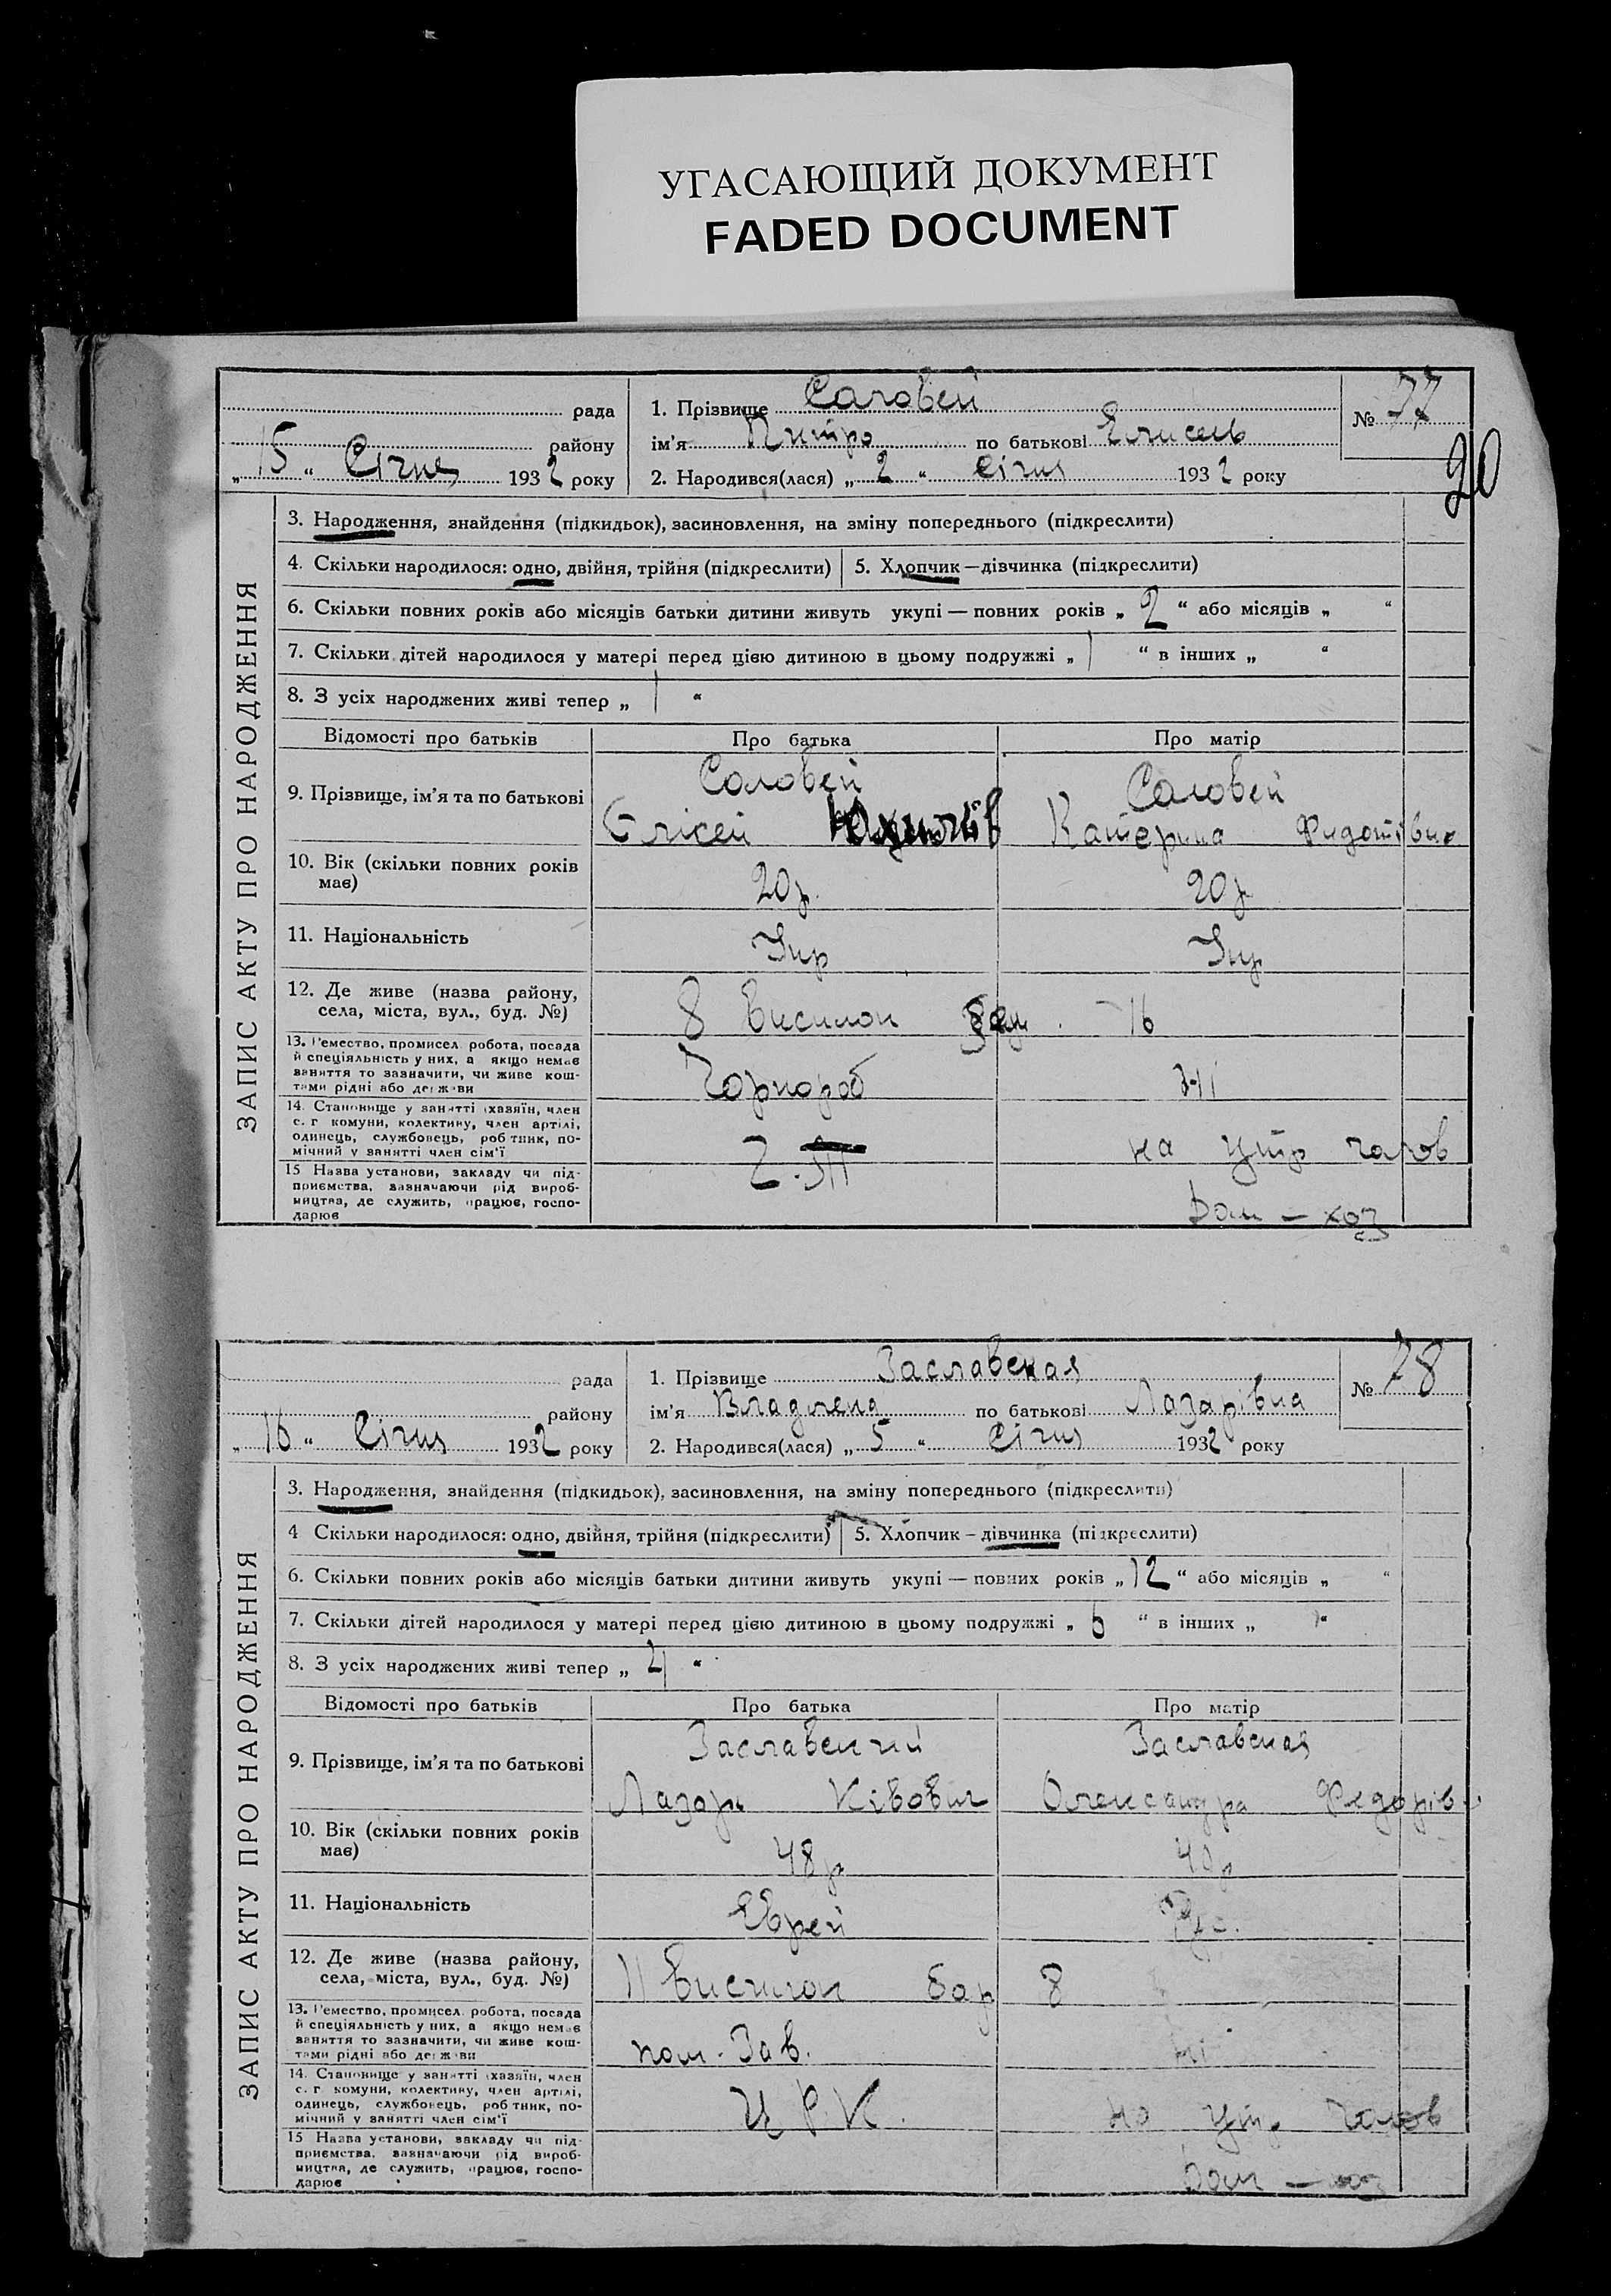 УГАСАЮЩИЙ ДОКУМЕНТ
FADED DOCUMENT
рада
району
„ 15 “ Січня 1932 року
1. Прізвище Саловей
ім’я Дмитро по батькові Єлисеев
2. Народився(лася) „ 2 “ Січня 1932 року
№ 77
20
ЗАПИС АКТУ ПРО НАРОДЖЕННЯ
3. Народження, знайдення (підкидьок), засиновлення, на зміну попереднього (підкреслити)
4. Скільки народилося: одно, двійня, трійня (підкреслити)
5. Хлопчик—дівчинка (підкреслити)
6. Скільки повних років або місяців батьки дитини живуть укупі — повних років „ 2 “ або місяців „ “
7. Скільки дітей народилося у матері перед цією дитиною в цьому подружжі „ 1 “ в інших „ “
8. З усіх народжених живі тепер „ 1 “
Відомості про батьків Про батька Про матір
9. Прізвище, ім’я та по батькові
Соловей
Єлісей
Саловей
Катерина Фидотівна
10. Вік (скільки повних років має)
20р. 20р
11. Національність
Укр Укр
12. Де живе (назва району, села, міста, вул., буд. №)
8 висилок 16
13. Ремество, промисел робота, посада
й спеціяльність у них, а якщо немає
заняття то зазначити, чи живе кош-
тами рідні або держави
Чорнороб Ні
14. Становище у занятті (хазяїн, член
с. г комуни, колективу, член артілі,
одинець, службовець, робтник, по-
мічний у занятті член сім’ї
на утр чолов
15 Назва установи, закладу чи під-
приємства, зазначаючи рід вироб-
ництва, де служить, працює, госпо-
дарює
Дом — хоз
рада
району
„ 16 “ Січня 1932 року
1. Прізвище Заславская
ім’я Владлена по батькові Лазарівна
2. Народився(лася) „ 5 “ Січня 1932 року
№ 78
ЗАПИС АКТУ ПРО НАРОДЖЕННЯ
3. Народження, знайдення (підкидьок), засиновлення, на зміну попереднього (підкреслити)
4 Скільки народилося: одно, двійня, трійня (підкреслити)
5. Хлопчик – дівчинка (підкреслити)
6. Скільки повних років або місяців батьки дитини живуть укупі — повних років „ 12 “ або місяців „ “
7. Скільки дітей народилося у матері перед цією дитиною в цьому подружжі „ 6 “ в інших „ “
8. З усіх народжених живі тепер „ 4 “
Відомості про батьків Про батька Про матір
9. Прізвище, ім’я та по батькові
Заславский
Лазарь Ківович
Заславская
Олександра Федорів
10. Вік (скільки повних років має)
48р 40р
11. Національність
Еврей Рус.
12. Де живе (назва району, села, міста, вул., буд. №)
11 висилок бар 8
13. Ремество, промисел робота, посада
й спеціяльність у них, а якщо немає
заняття то зазначити, чи живе кош-
тами рідні або держави
пом. Зав. ні
14. Становище у занятті (хазяїн, член
с. г комуни, колективу, член артілі,
одинець, службовець, робтник, по-
мічний у занятті член сім’ї
Ц Р К. на утр чолов
15 Назва установи, закладу чи під-
приємства, зазначаючи рід вироб-
ництва, де служить, працює, госпо-
дарює
Дом — хоз